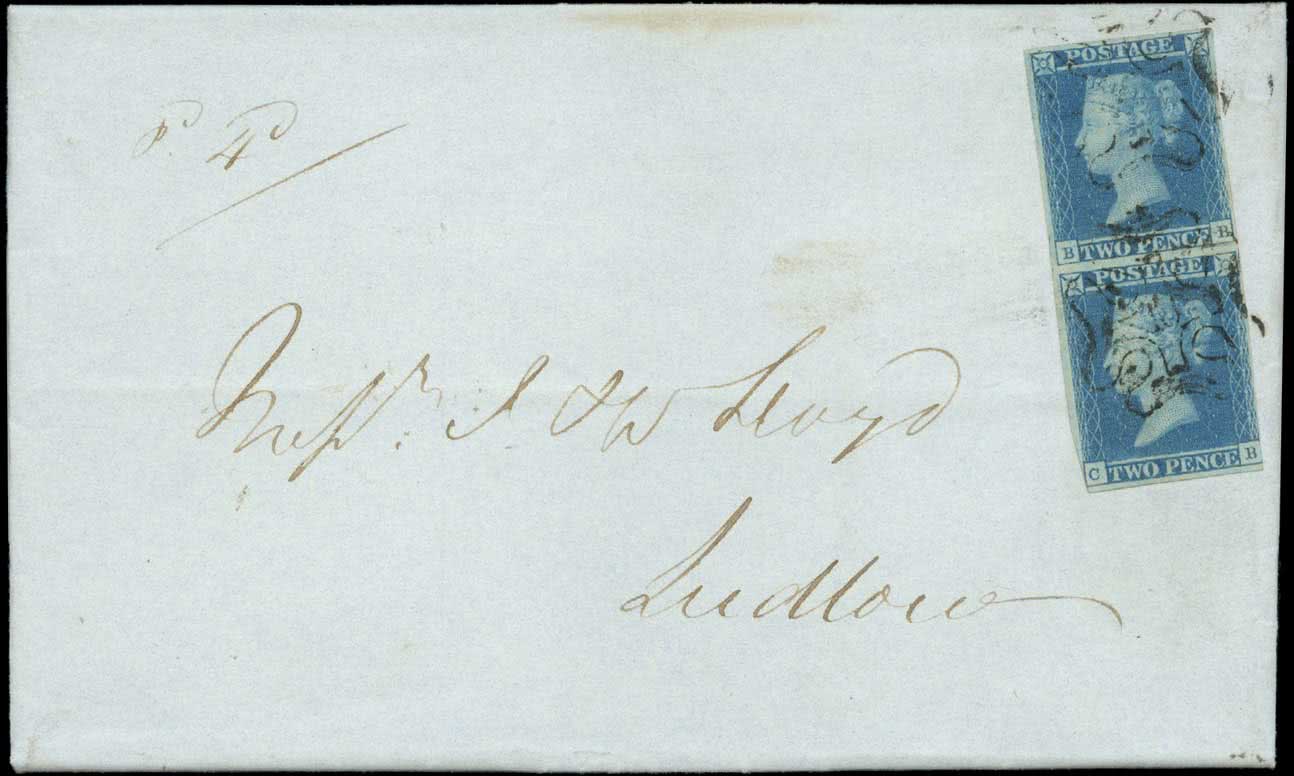 pd. 4d
POSTAGE
B TWO PENCE B
POSTAGE
C TWO PENCE B
Messrs. J & W Lloyd
Ludlow